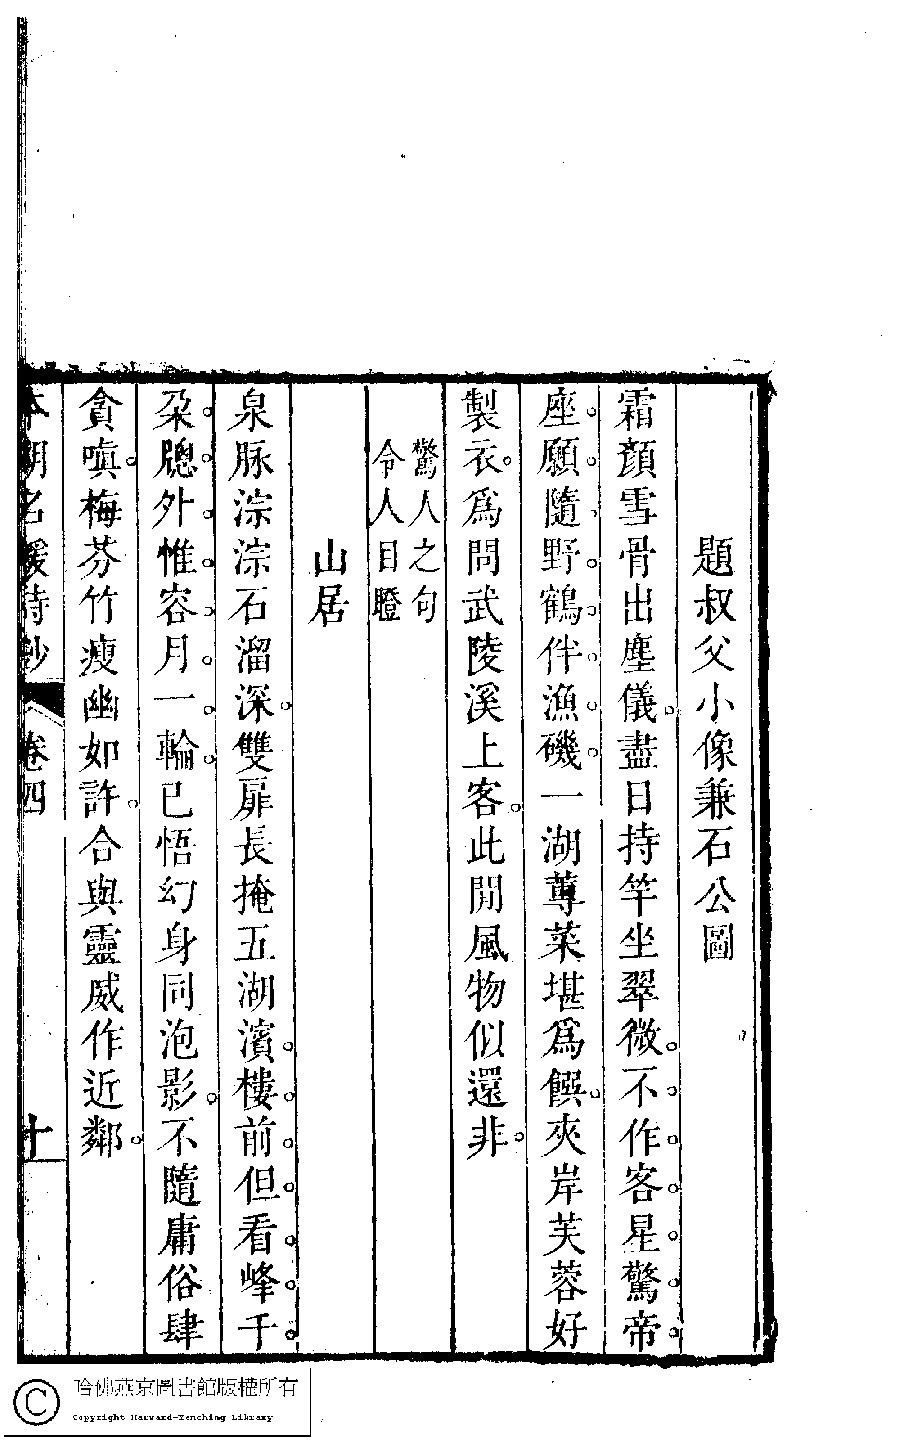 題叔父小像兼石公圖
霜顏雪骨出塵儀。盡日持竿坐翠微。不作客星驚帝
座。願隨野鶴伴漁磯。一湖蓴菜堪爲饌。夾岸芙蓉好
製衣。爲問武陵溪上客。此閒風物似還非。
驚人之句
令人目瞪
山居
泉脉淙淙石溜深。雙扉長掩五湖濱。樓前但看峰千
朶。牕外惟容月一輪。已悟幻身同泡影。不隨庸俗肆
貪嗔。梅芬竹瘦幽如許。合與靈威作近鄰。
本朝名媛詩鈔 卷四 十
哈佛燕京圖書館版權所有
Copyright Harvard-Yenching Library